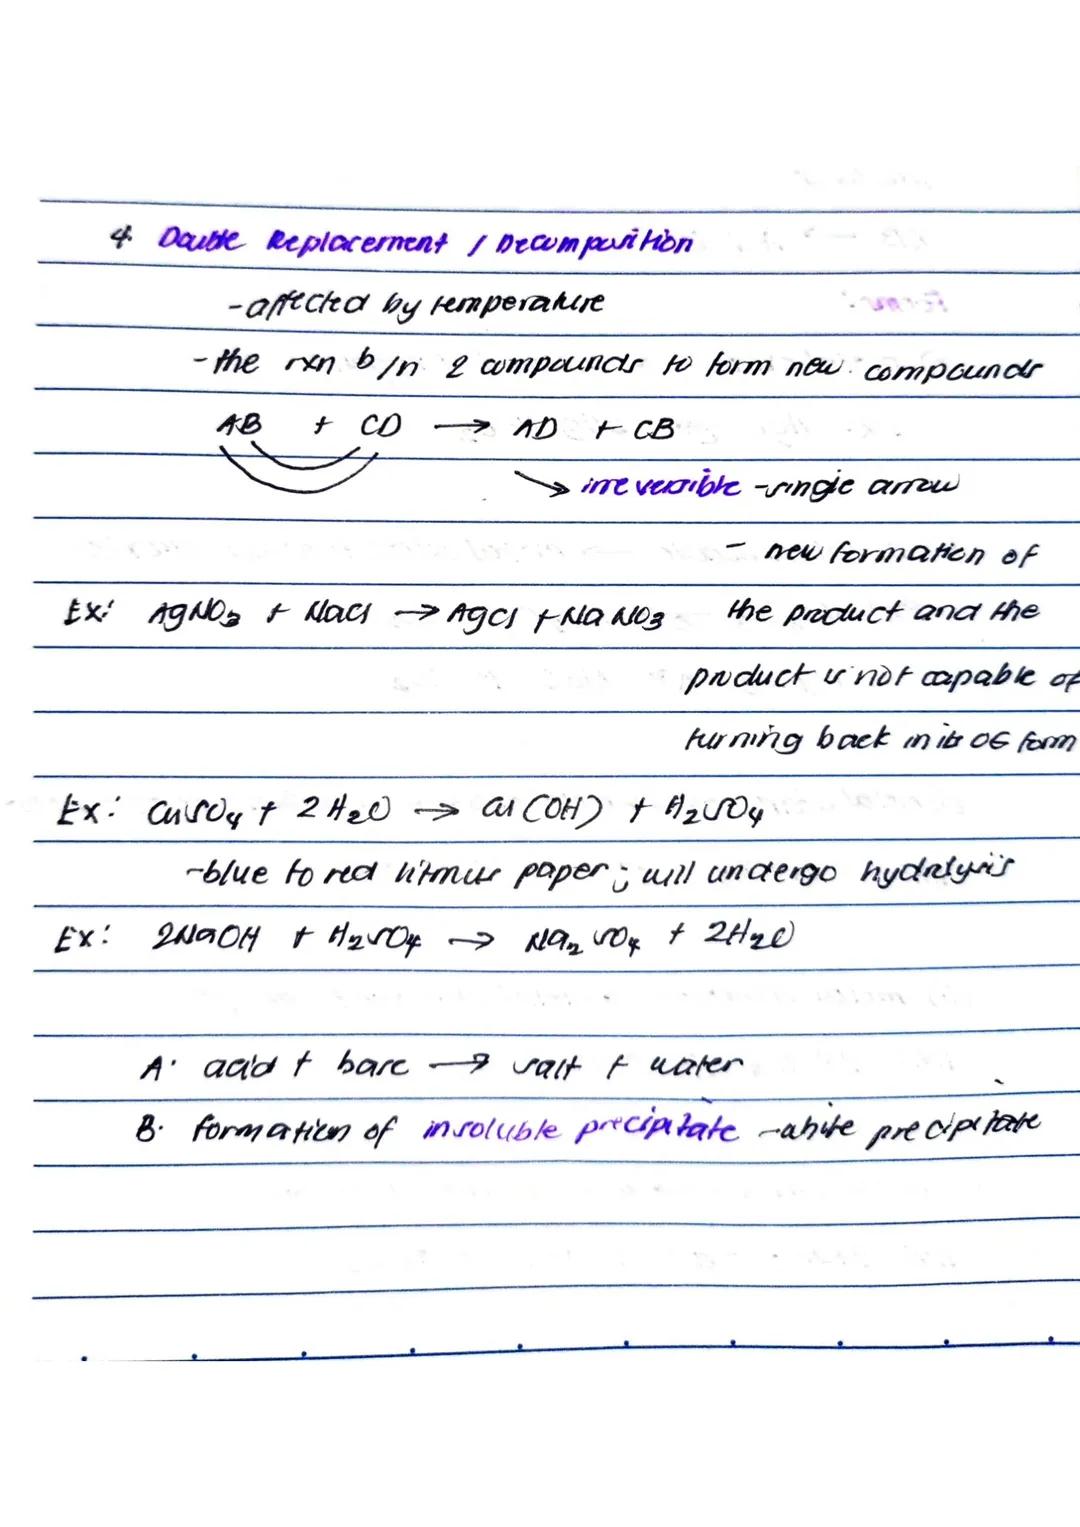 4. Double Replacement / Decomposition
- affected by temperature
- the rxn b/n 2 compounds to form new compounds
AB + CD → AD + CB
→ irreversible - single arrow
- new formation of
Ex: AgNO3 + NaCl → AgCl + NaNO3 the product and the
product is not capable of
turning back in its OG form
Ex: CuSO4 + 2H2O → Cu(OH) + H2SO4
- blue to red litmus paper; will undergo hydrolysis
Ex: 2NaOH + H2SO4 → Na2SO4 + 2H2O
A. acid + base → salt + water
B. formation of insoluble precipitate - white precipitate